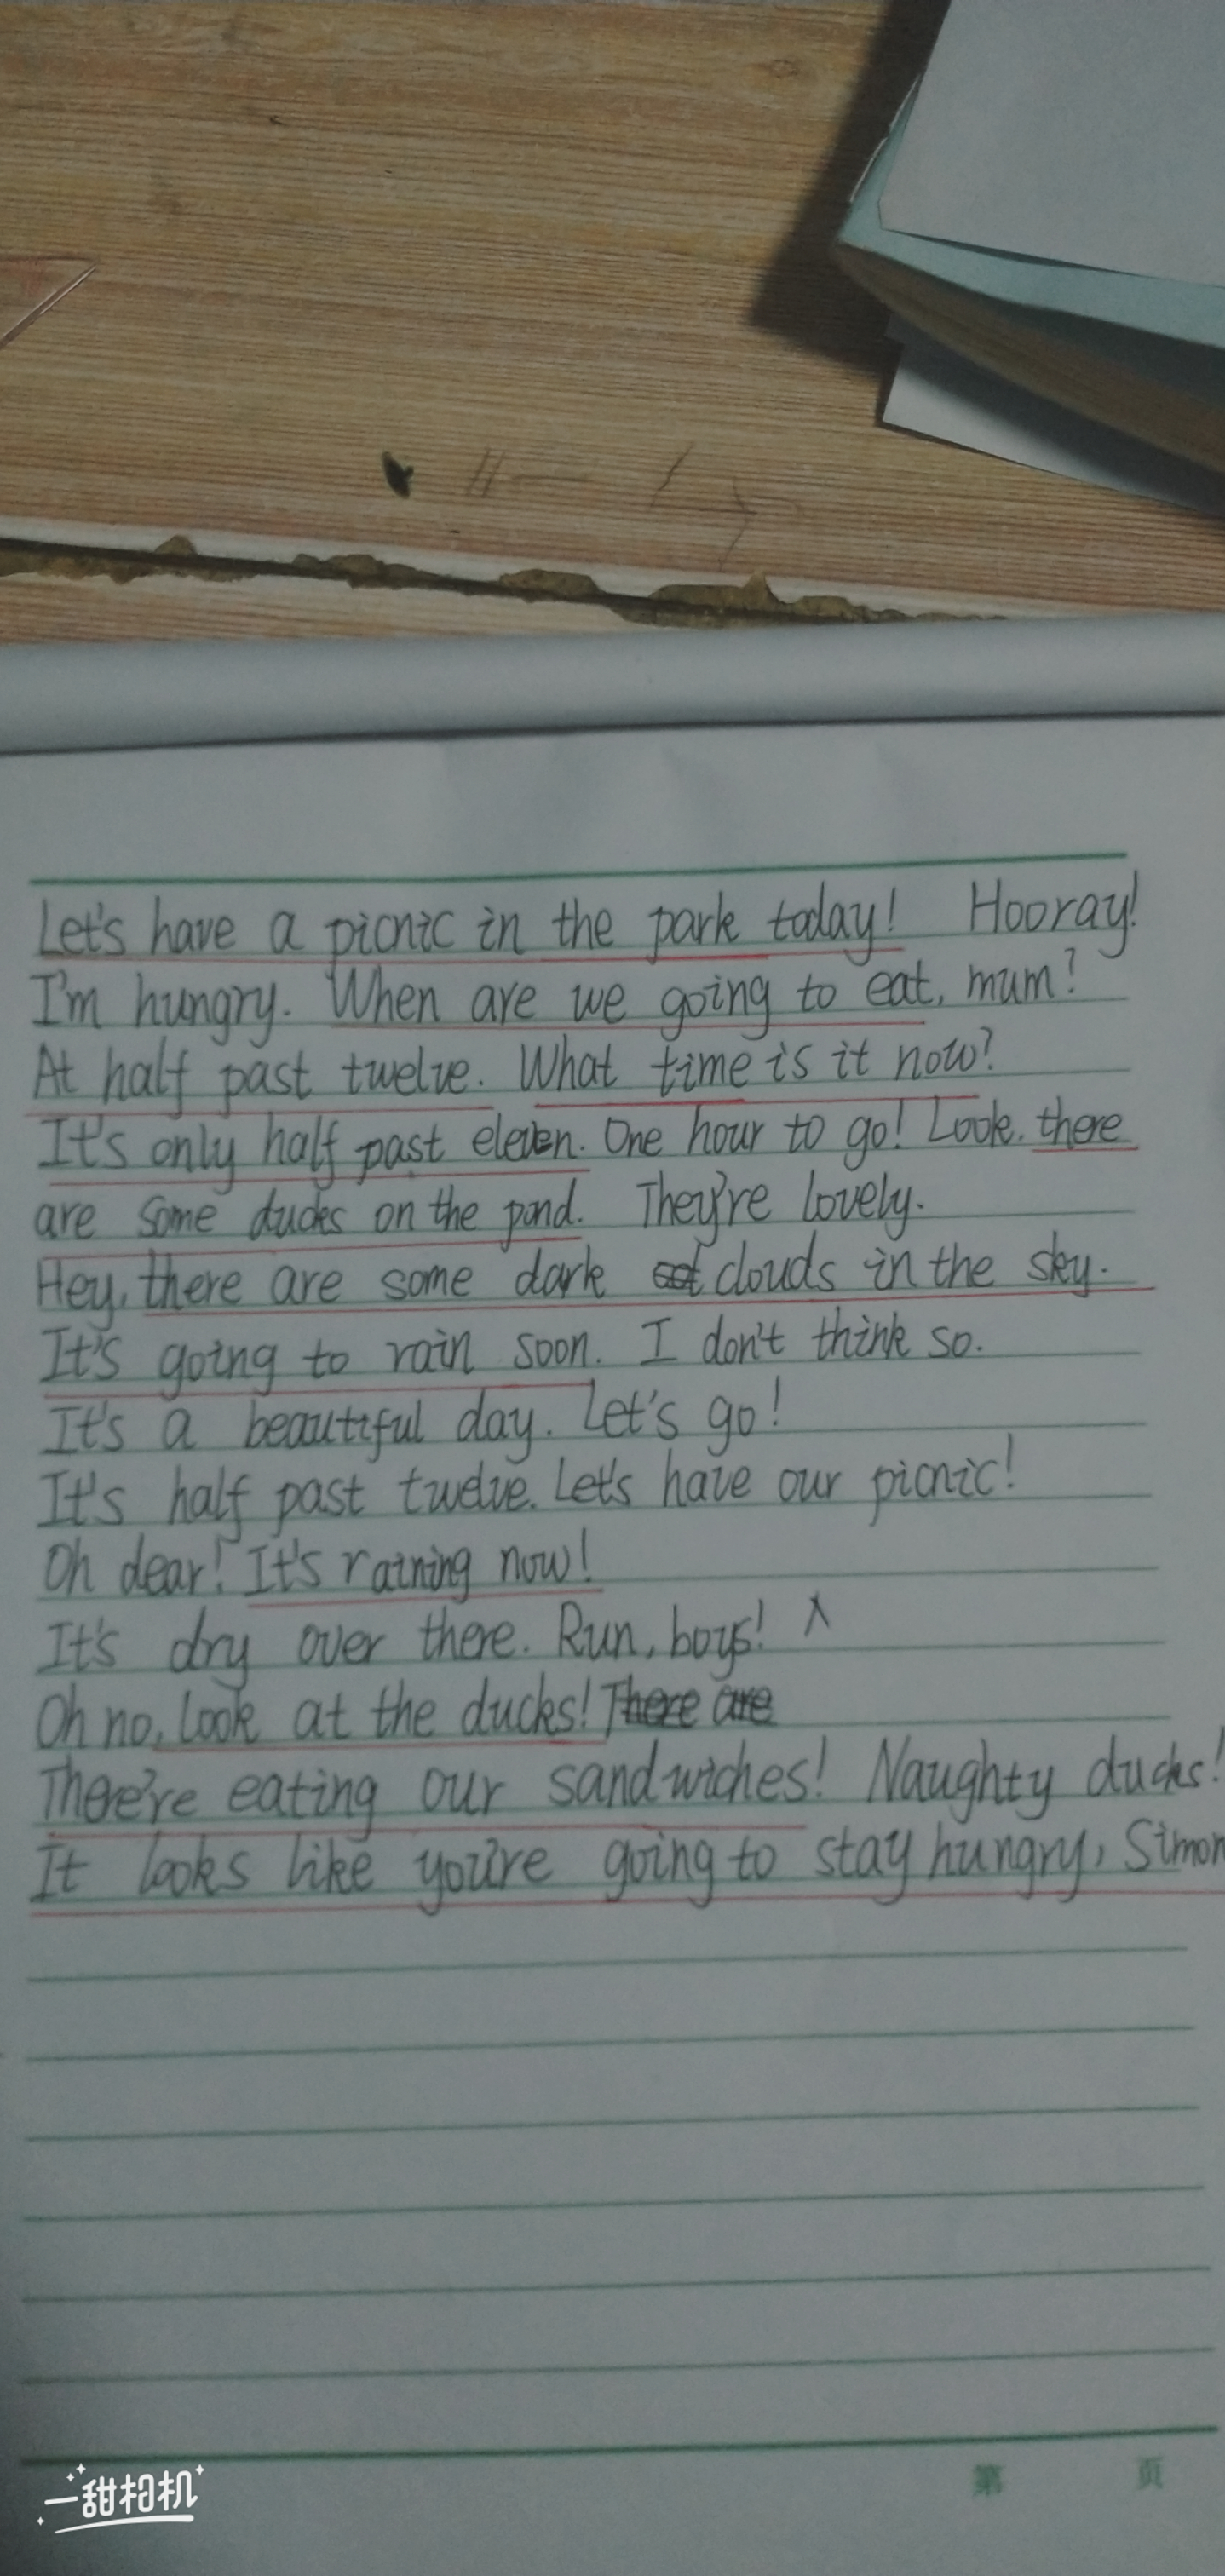 Let's have a picnic in the park today! Hooray!
I'm hungry. When are we going to eat, mum?
At half past twelve. What time is it now?
It's only half past eleven. One hour to go! Look. there
are some ducks on the pond. They're lovely.
Hey, there are some dark clouds in the sky.
It's going to rain soon. I don't think so.
It's a beautiful day. Let's go!
It's half past twelve. Let's have our picnic!
Oh dear! It's raining now!
It's dry over there. Run, boys!
Oh no, look at the ducks! There are
There're eating our sandwiches! Naughty ducks!
It looks like you're going to stay hungry, Simon
第 页
一甜相机